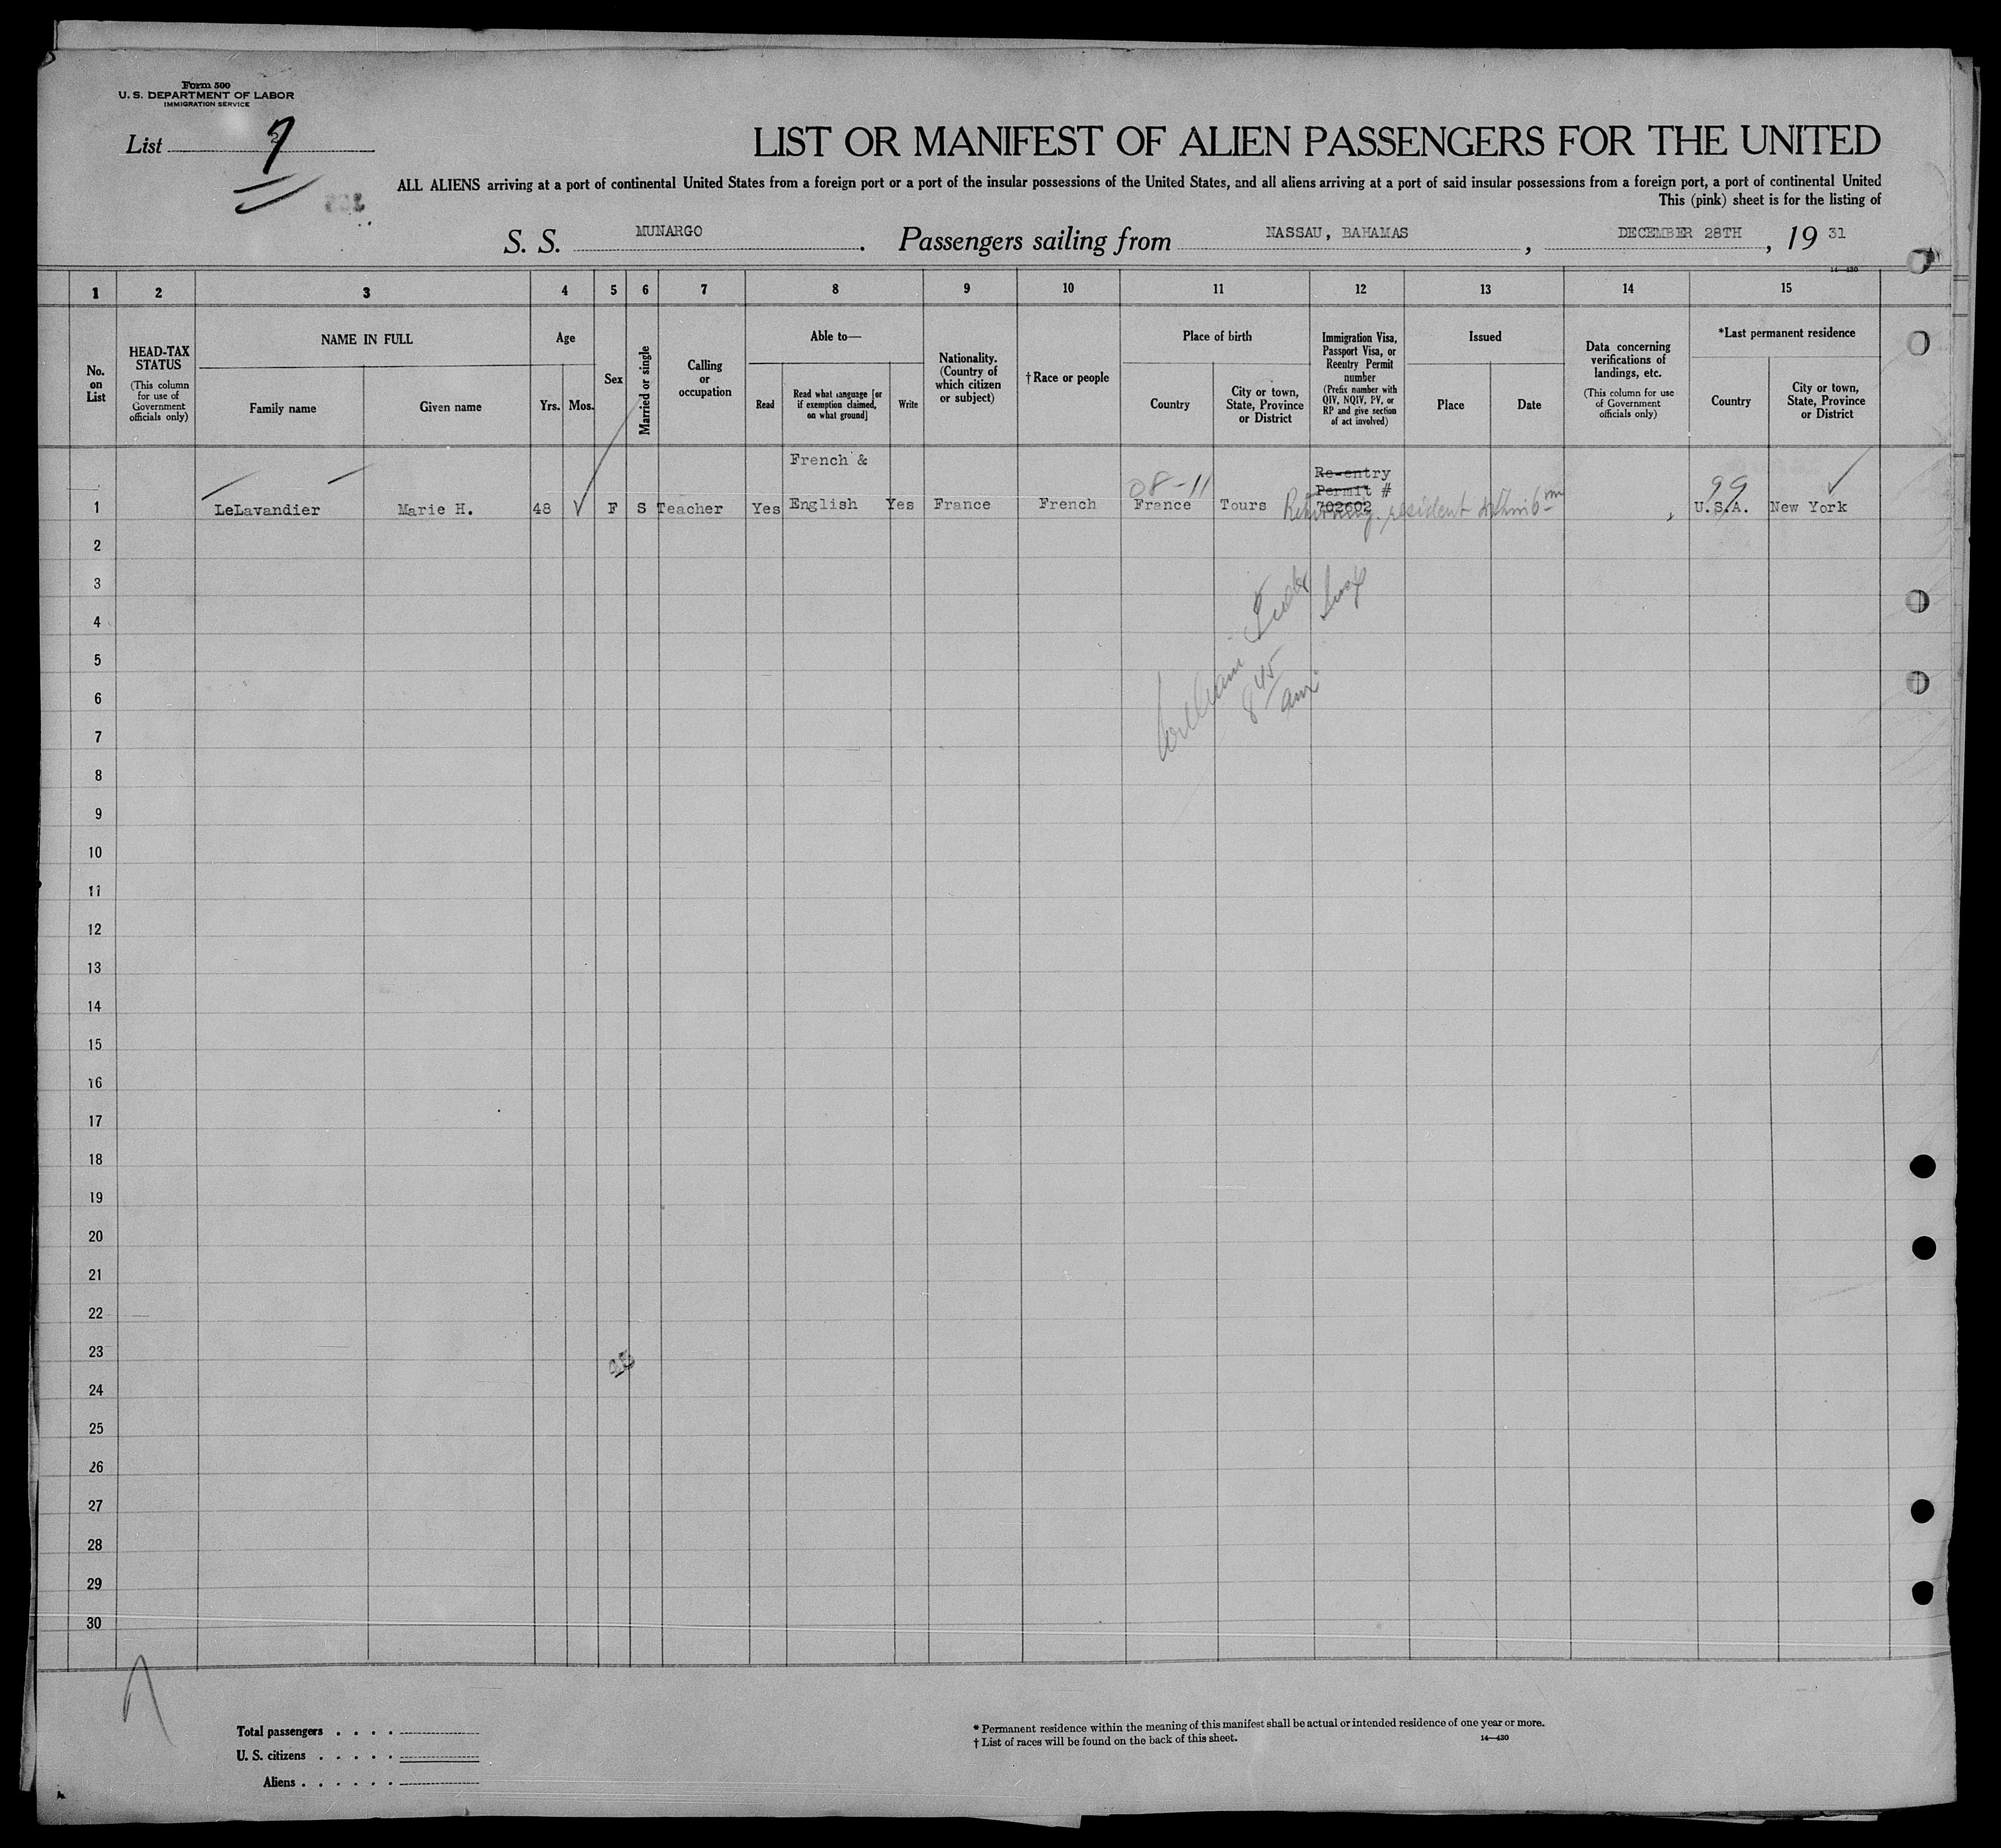 Form 500
U. S. DEPARTMENT OF LABOR
IMMIGRATION SERVICE
List 2
LIST OR MANIFEST OF ALIEN PASSENGERS FOR THE UNITED
ALL ALIENS arriving at a port of continental United States from a foreign port or a port of the insular possessions of the United States, and all aliens arriving at a port of said insular possessions from a foreign port, a port of continental United
This (pink) sheet is for the listing of
S. S. MUNARGO. Passengers sailing from NASSAU, BAHAMAS, DECEMBER 28TH, 19 31
14—430
1 2 3 4 5 6 7 8 9 10 11 12 13 14 15
No. on List
HEAD-TAX STATUS
(This column for use of Government officials only)
NAME IN FULL
Family name
Given name
Age
Yrs. Mos.
Sex
Married or single
Calling or occupation
Able to—
Read
Read what language [or if exemption claimed, on what ground]
Write
Nationality. (Country of which citizen or subject)
†Race or people
Place of birth
Country
City or town, State, Province or District
Immigration Visa, Passport Visa, or Reentry Permit number
(Prefix number with QIV, NQIV, PV, or RP and give section of act involved)
Issued
Place
Date
Data concerning verifications of landings, etc.
(This column for use of Government officials only)
*Last permanent residence
Country
City or town, State, Province or District
French &
Re-entry
Permit #
08-11
99
1 LeLavandier Marie H. 48 F S Teacher Yes English Yes France French France Tours 702602 U.S.A. New York
Returning resident within 6 m
2
3
4
5
6
William
8 45
am
7
8
9
10
11
12
13
14
15
16
17
18
19
20
21
22
23
24
25
26
27
28
29
30
Total passengers . . . .
U. S. citizens . . . . .
Aliens . . . . . .
* Permanent residence within the meaning of this manifest shall be actual or intended residence of one year or more.
† List of races will be found on the back of this sheet.
14—430